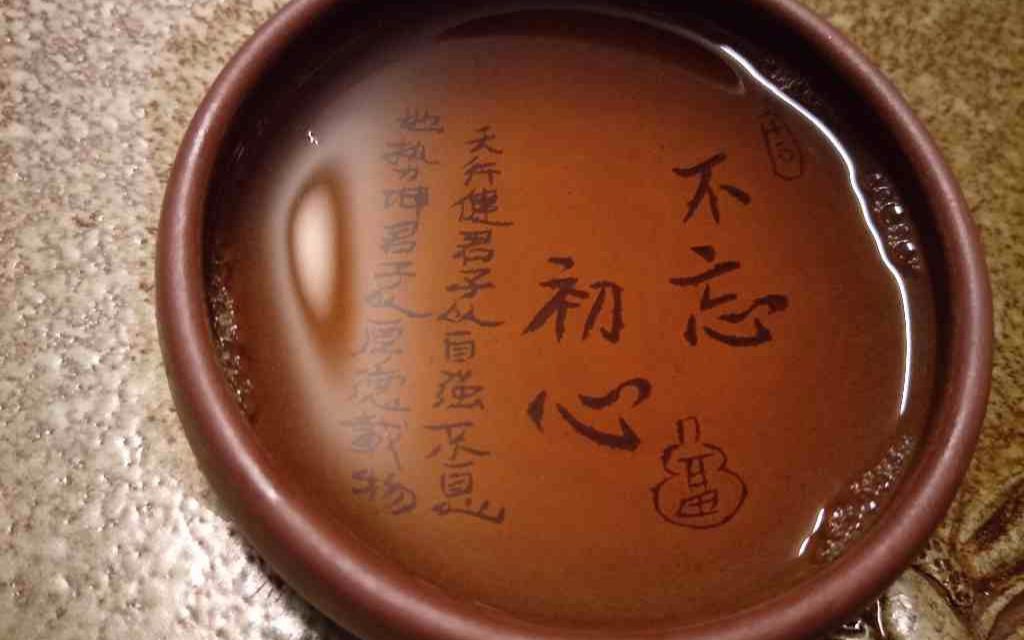 不忘
初心
天行健君子以自强不息
地势坤君子以厚德载物